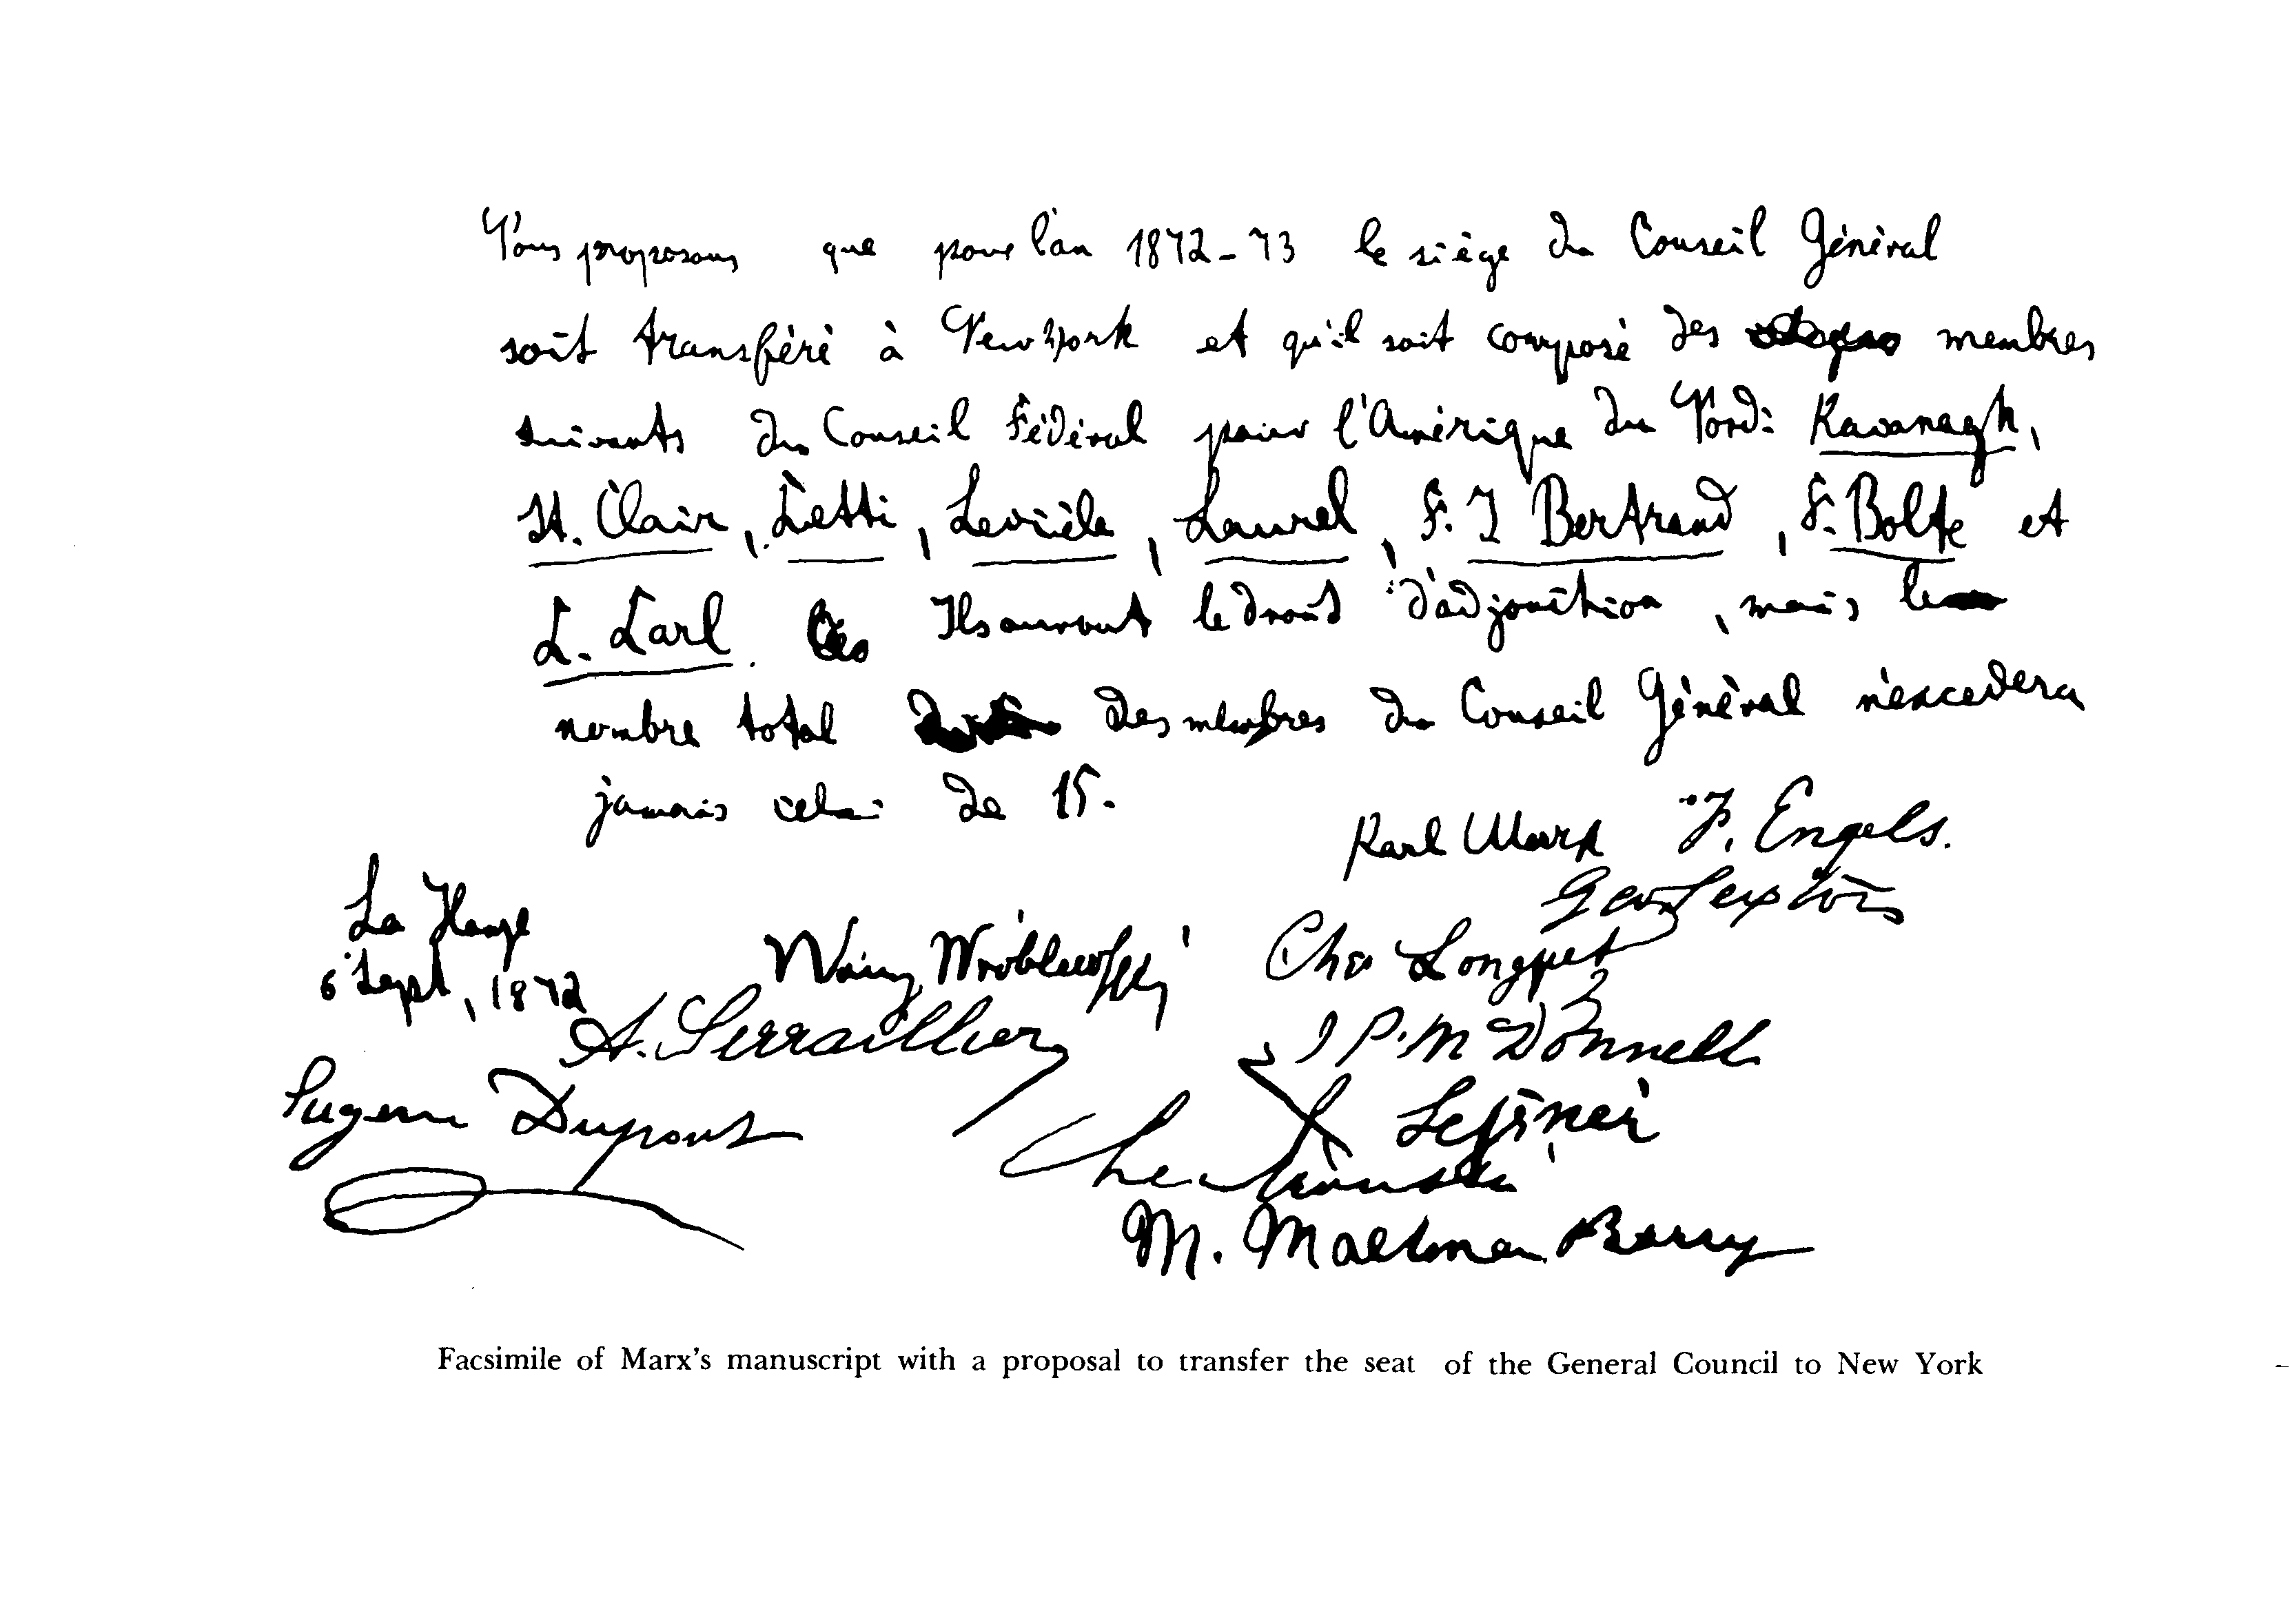 Nous proposons que pour l'an 1872-73 le siège du Conseil Général
soit transféré à New York et qu'il soit composé des membres
suivants du Conseil Fédéral pour l'Amérique du Nord: Kavanagh,
St. Clair, Cetti, Levièle, Laurel, F. J Bertrand, F. Bolte et
C. Carl. Ils auront le droit d'adjonction, mais le
nombre total des membres du Conseil Général n'excedera
jamais celui de 15.
Karl Marx F. Engels.
Geo Sexton
La Haye
6 Sept, 1872
Walery Wróblewski
Ch. Longuet
A. Serraillier
J P. McDonnell
Eugene Dupont
Lessner
Le Moussu
M. Maltman Barry
Facsimile of Marx's manuscript with a proposal to transfer the seat of the General Council to New York